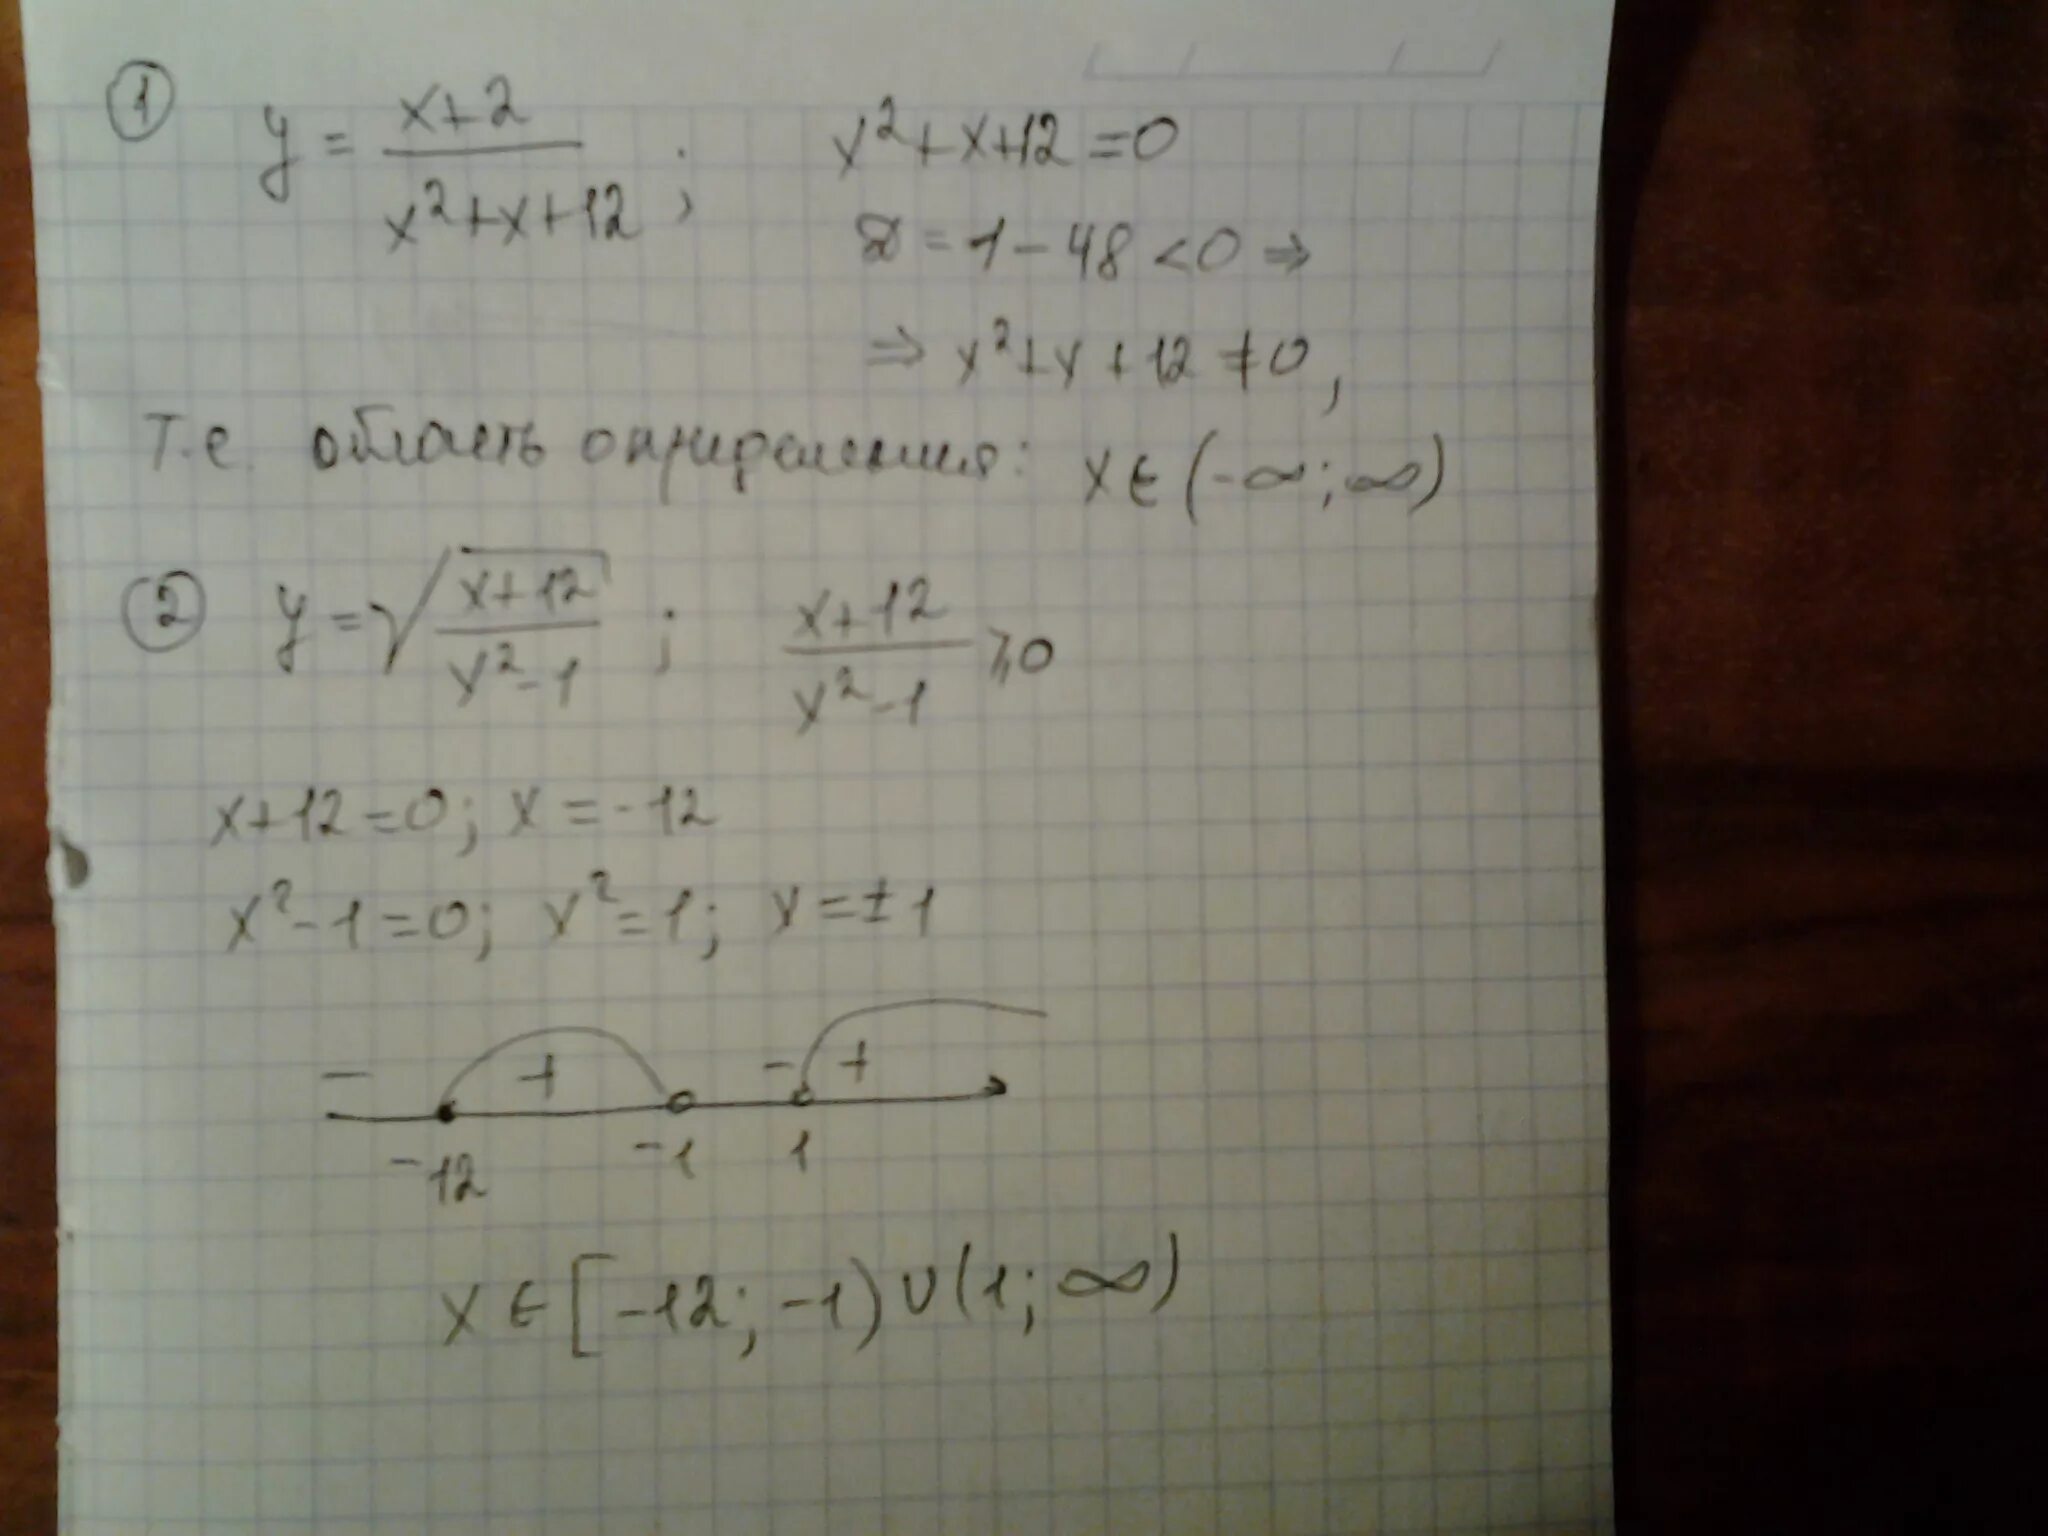 ① y = (x+2)/(x²+x+12) ; x²+x+12=0
D = 1 - 48 < 0 ⇒
⇒ x²+x+12 ≠ 0,
т.е. область определения: x ∈ (-∞; ∞)
② y = √((x+12)/(x²-1)) ; (x+12)/(x²-1) ⩾ 0
x+12=0; x = -12
x²-1=0; x²=1; x=±1
- + - +
-12 -1 1
x ∈ [-12; -1) ∪ (1; ∞)